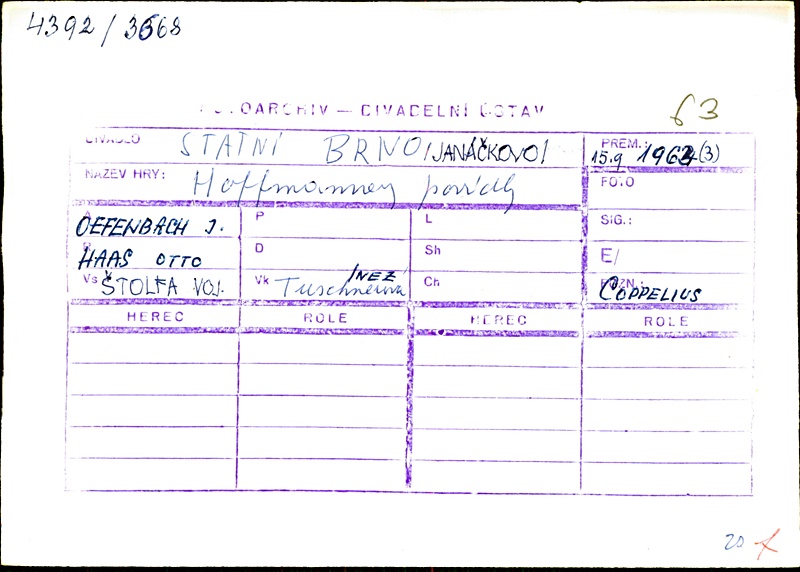 4392/3568
63
FOTOARCHIV — DIVADELNÍ ÚSTAV
DIVADLO STATNÍ BRNO /JANÁČKOVO/
PREM.: 15.9 1962 (3)
NÁZEV HRY: Hoffmannovy povídky
FOTO
A OFFENBACH J. P L SIG.:
R HAAS OTTO D Sh E/
Vs ŠTOLFA VOJ. Vk Tuschnerová INEZ Ch POZN.: COPPELIUS
HEREC ROLE HEREC ROLE
20